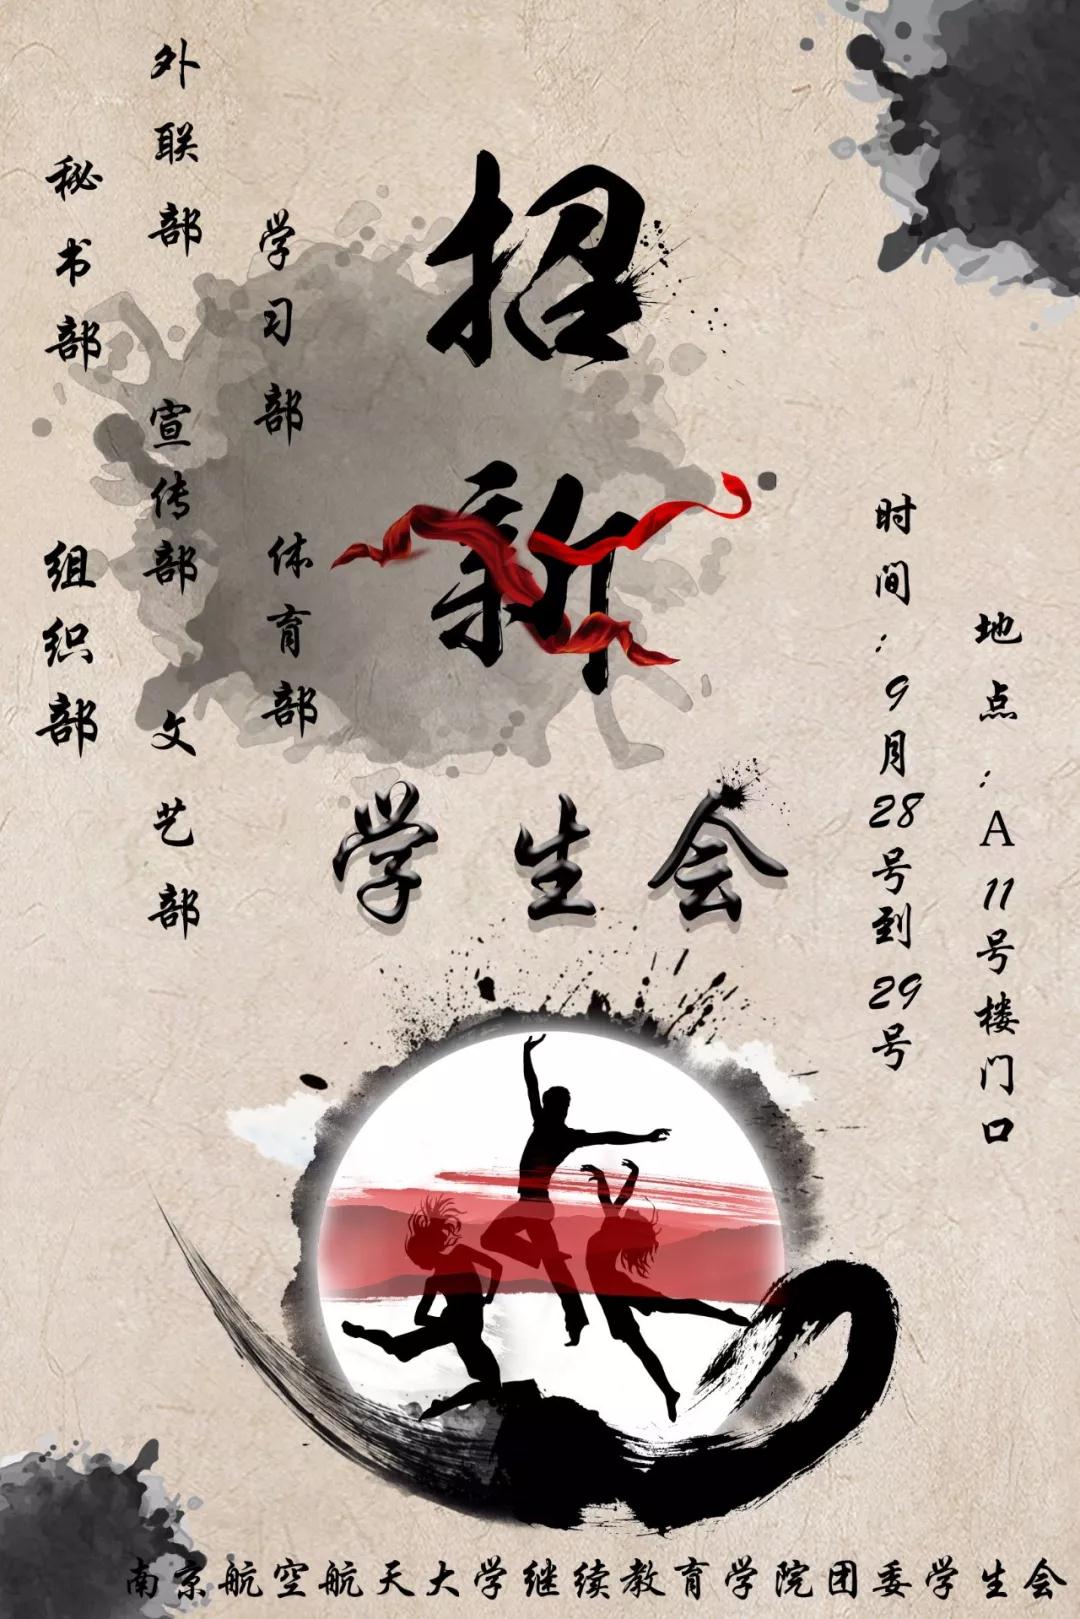 招新
学生会
外联部
秘书部
学习部
宣传部
组织部
体育部
文艺部
时间：9月28号到29号
地点：A11号楼门口
南京航空航天大学继续教育学院团委学生会